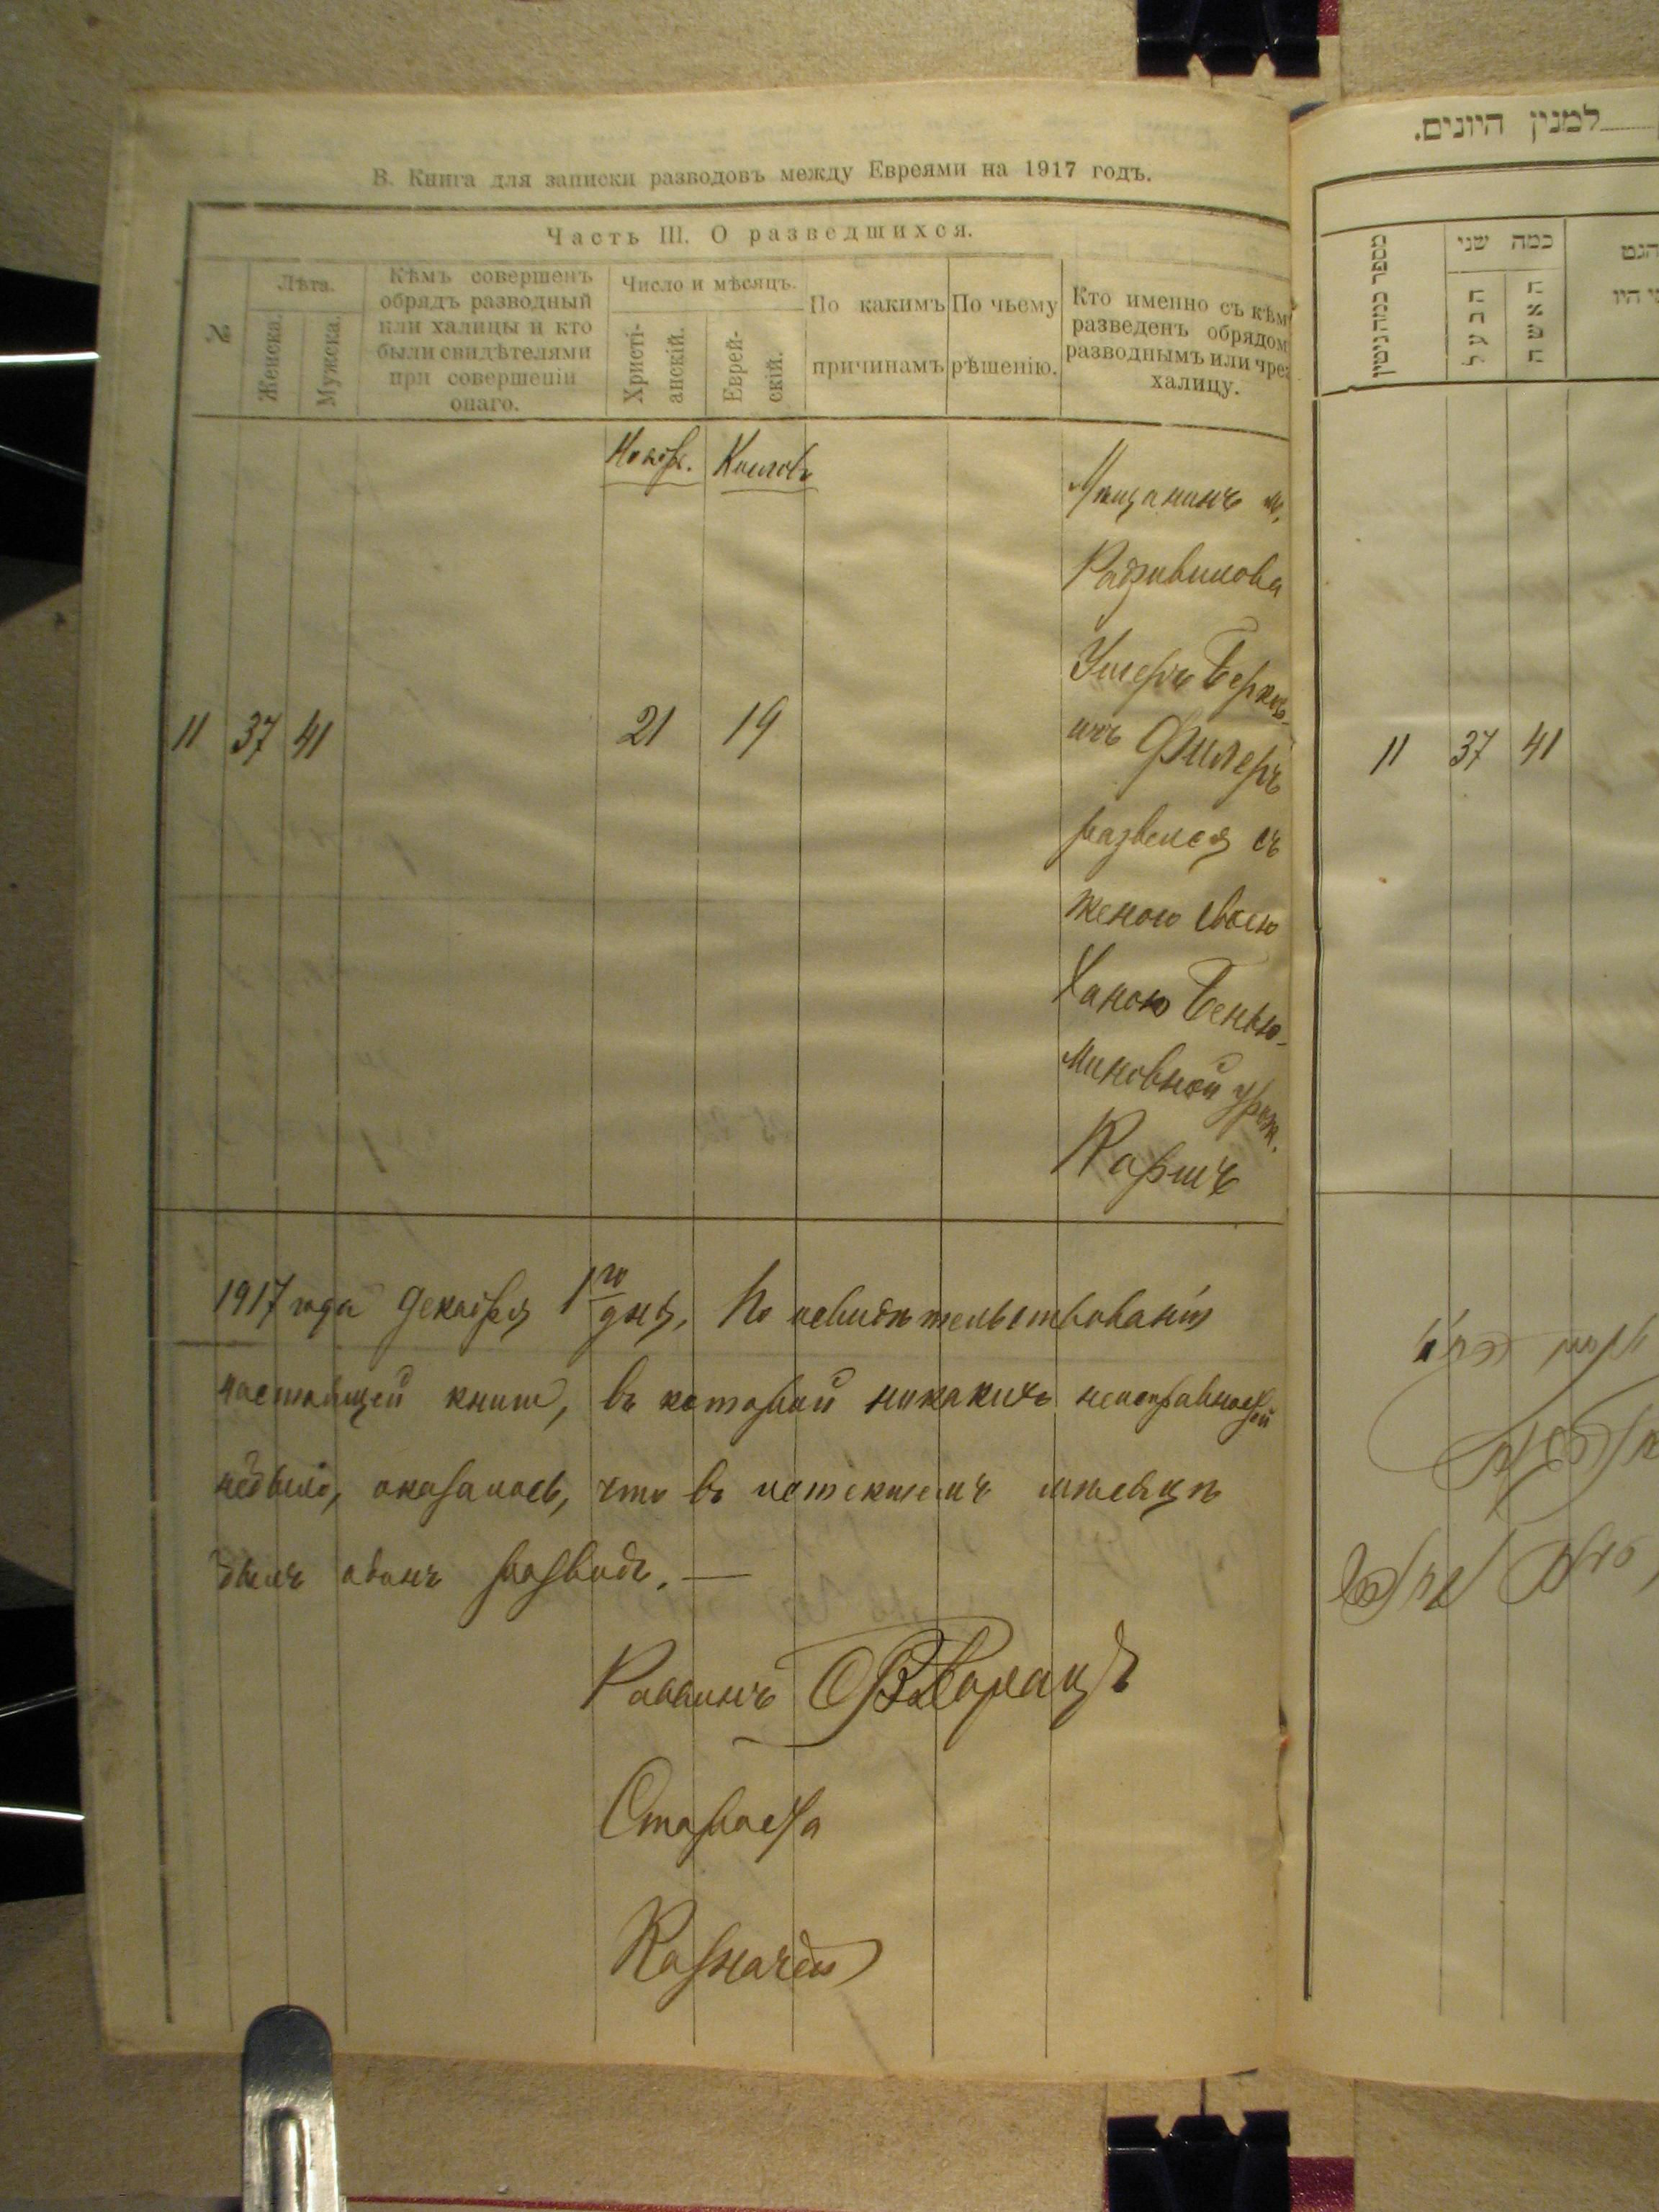 В. Книга для записки разводовъ между Евреями на 1917 годъ.
Часть III. О разведшихся.
№
Лѣта.
Женска.
Мужска.
Кѣмъ совершенъ
обрядъ разводный
или халицы и кто
были свидѣтелями
при совершеніи
онаго.
Число и мѣсяцъ.
Христі-
анскій.
Еврей-
скій.
По какимъ
причинамъ
По чьему
рѣшенію.
Кто именно съ кѣм
разведенъ обрядом
разводнымъ или чрез
халицу.
Ноябр. Кислевъ
Мѣщанинъ м.
Радзивилова
Ушеръ Берков-
ичъ
11 37 41 21 19
развелся съ
женою своею
Ханою Бенью-
миновной урож.
Коршъ
1917 года Декабря 1го дня. По освидѣтельствованіи
настоящей книги, въ которой никакихъ неисправностей
небыло, оказалось, что въ истекшемъ мѣсяцѣ
былъ одинъ разводъ. —
Раввинъ
Староста
Казначей
למנין היונים.
מספר כמה גיטין
כמה שני
הבעל
האשה
הגט
11 37 41